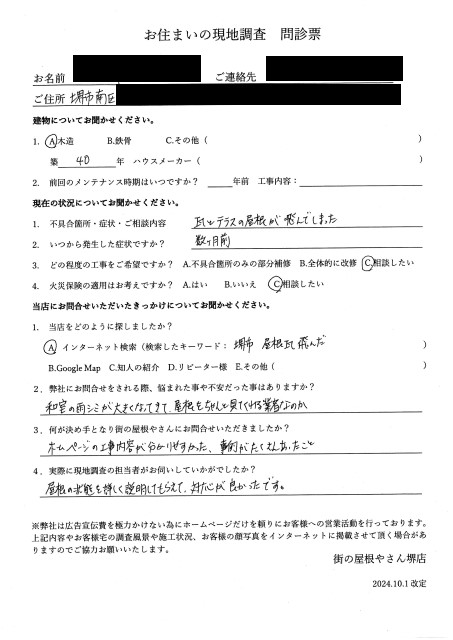 お住まいの現地調査　問診票
お名前　ご連絡先
ご住所 堺市南区
建物についてお聞かせください。
1. A.木造　B.鉄骨　C.その他（　）
築 40 年　ハウスメーカー（　）
2. 前回のメンテナンス時期はいつですか？ ____年前　工事内容：
現在の状況についてお聞かせください。
1. 不具合箇所・症状・ご相談内容　瓦とテラスの屋根が飛んでしまった
2. いつから発生した症状ですか？　数ヶ月前
3. どの程度の工事をご希望ですか？ A.不具合箇所のみの部分補修　B.全体的に改修　C.相談したい
4. 火災保険の適用はお考えですか？ A.はい　B.いいえ　C.相談したい
当店にお問合せいただいたきっかけについてお聞かせください。
1. 当店をどのように探しましたか？
A. インターネット検索（検索したキーワード：堺市　屋根瓦 飛んだ　）
B.Google Map　C.知人の紹介　D.リピーター様　E.その他（　）
2、弊社にお問合せをされる際、悩まれた事や不安だった事はありますか？
和室の雨シミが大きくなってきて、屋根をちゃんと見てくれる業者なのか
3、何が決め手となり街の屋根やさんにお問合せいただきましたか？
ホームページの工事内容が分かりやすかった、事例がたくさんあったこと
4、実際に現地調査の担当者がお伺いしていかがでしたか？
屋根の状態を詳しく説明してもらえて、対応が良かったです。
※弊社は広告宣伝費を極力かけない為にホームページだけを頼りにお客様への営業活動を行っております。
上記内容やお客様宅の調査風景や施工状況、お客様の顔写真をインターネットに掲載させて頂く場合があ
りますのでご協力お願いいたします。
街の屋根やさん堺店
2024.10.1 改定